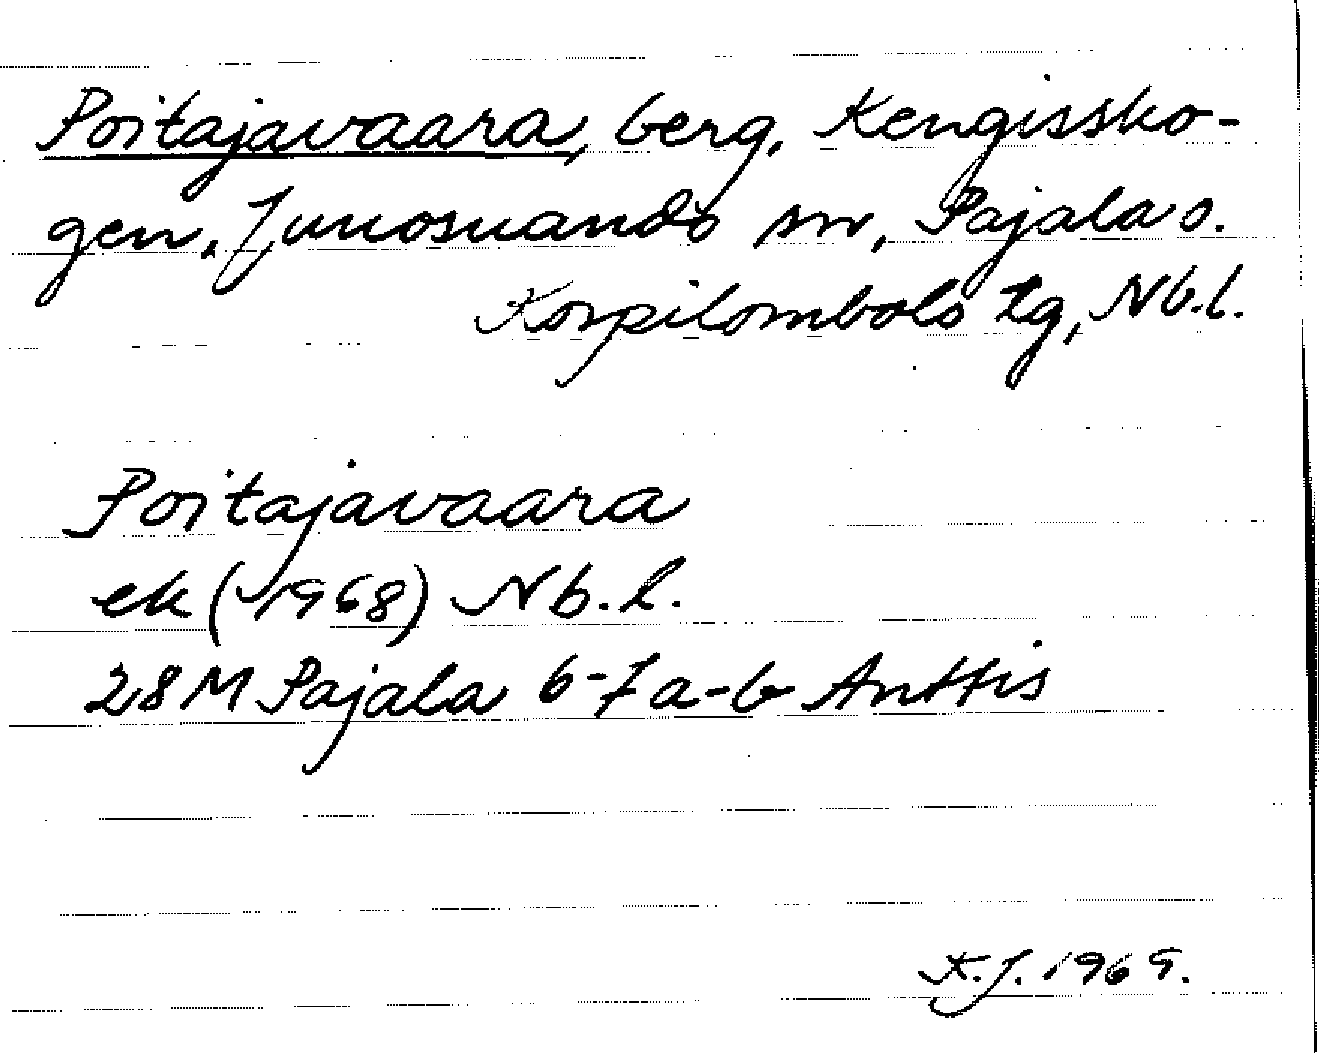 Poitajavaara, berg, Kengissko-
gen, Junosuando sn, Pajala o.
Korpilombolo tg, Nb.l.
Poitajavaara
ek (1968) Nb.l.
28M Pajala 6-7 a-b Anttis
K.J. 1969.